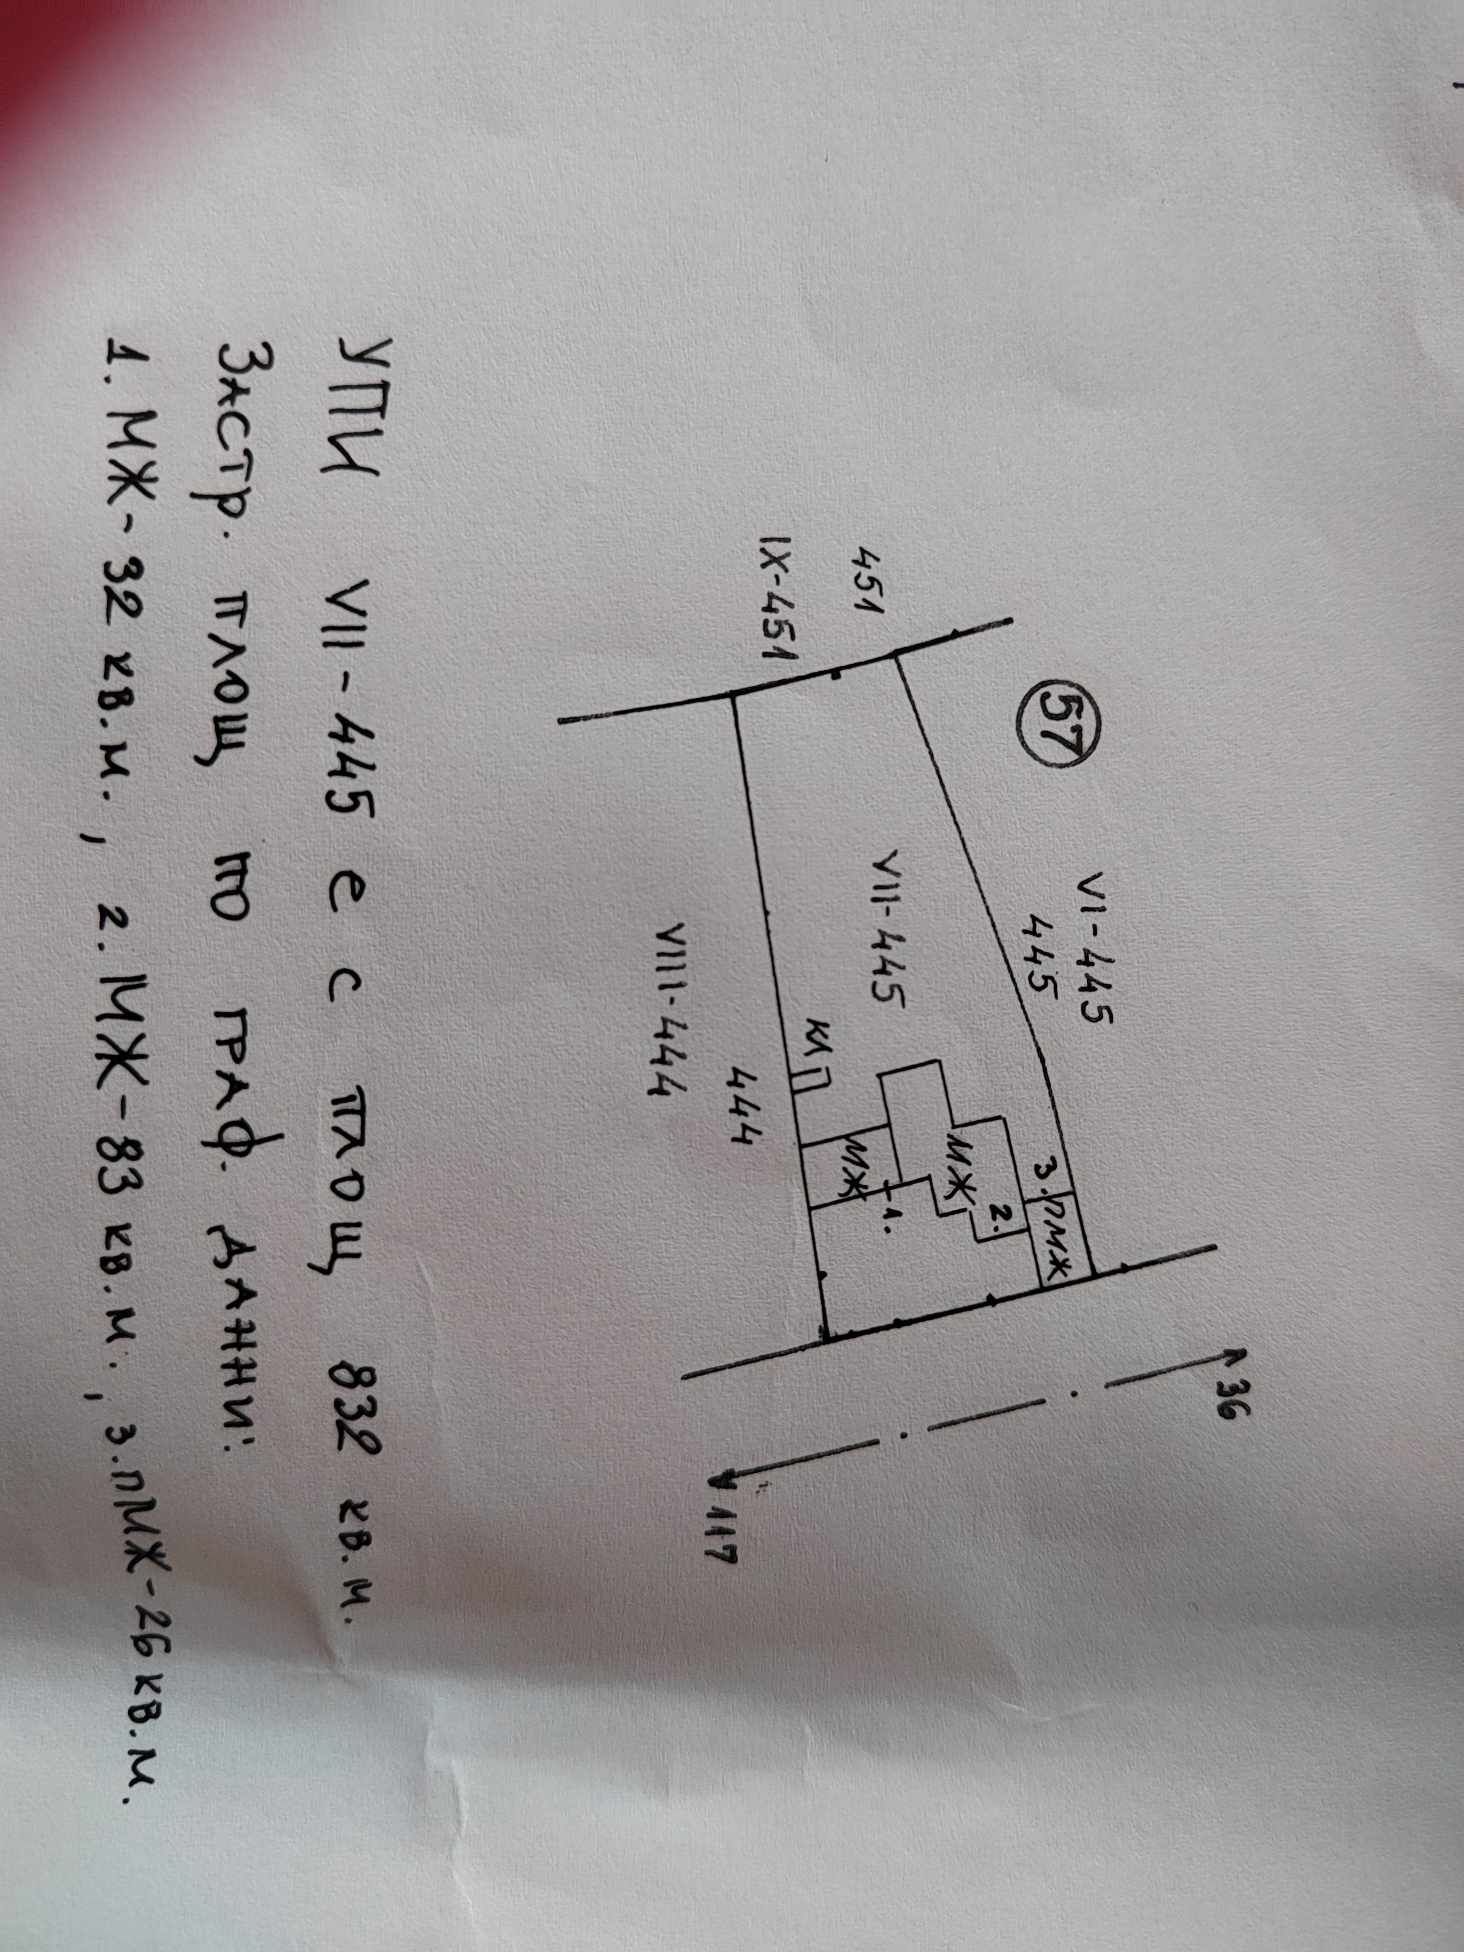 57
VI-445
445
451
IX-451
VII-445
3.пМЖ
2.
МЖ
1.
МЖ
КЛ
444
VIII-444
36
117
УПИ VII-445 е с площ 832 кв.м.
Застр. площ по граф. данни:
1. МЖ-32 кв.м., 2. МЖ-83 кв.м., 3.пМЖ-26 кв.м.